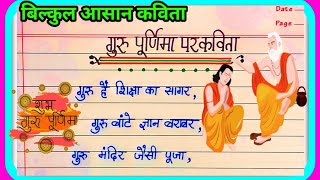 बिल्कुल आसान कविता
Date
Page
गुरु पूर्णिमा पर कविता
गुरु हैं शिक्षा का सागर,
शुभ
गुरु पूर्णिमा
गुरु बांटे ज्ञान बराबर,
गुरु मंदिर जैसी पूजा,